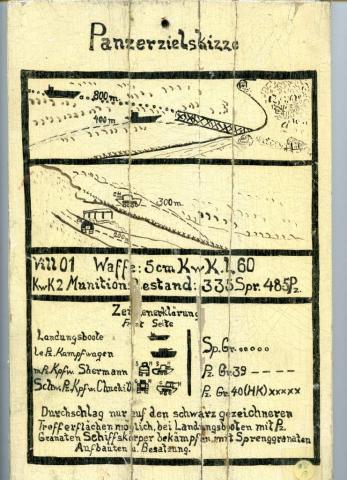 Panzerzielskizze
800m.
400m.
300m.
VIII 01 Waffe: 5cm KwK.L.60
KwK2 Munition Bestand: 335 Spr. 485 Pz.
Zeichenerklärung
Front Seite
Landungsboote
le Pz. Kampfwagen
m Pz. Kpfw Shermann
Schw. Pz. Kpfw. Churchill
Sp. Gr. o o o o o
Pz Gr 39 – – – – –
Pz Gr. 40 (HK) x x x x x
Durchschlag nur auf den schwarz gezeichneren
Trefferflächen möglich, bei Landungsbooten mit Pz
Granaten Schiffskörper bekämpfen, mit Sprenggranaten
Aufbauten u. Besatzung.